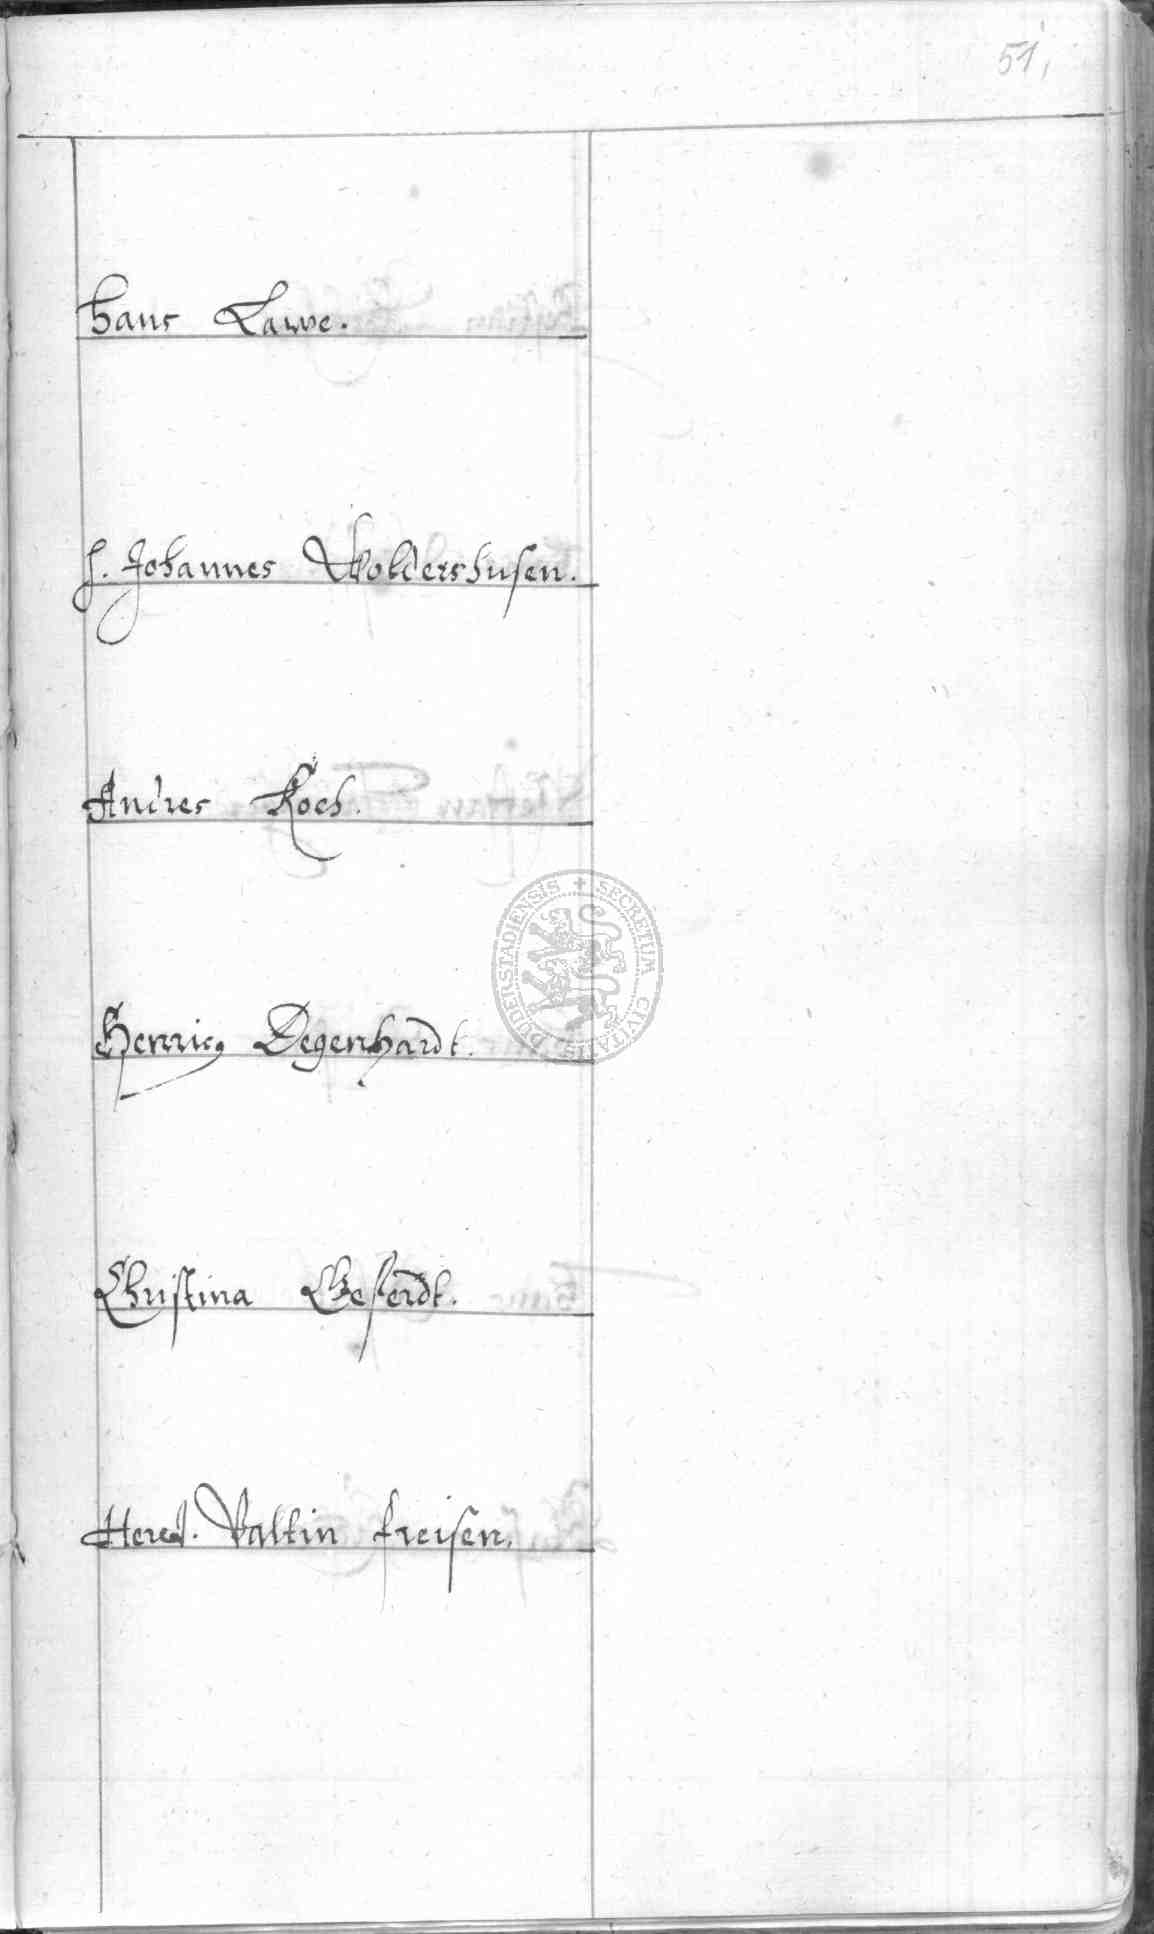 51,
Hans Lawe.
H. Johannes Woldershusen.
Andres Koch.
Henricg Degenhardt.
Christina Geferdt.
Hered. Valtin freisen.
DUDERSTADIENSIS + SECRETUM CIVITATIS